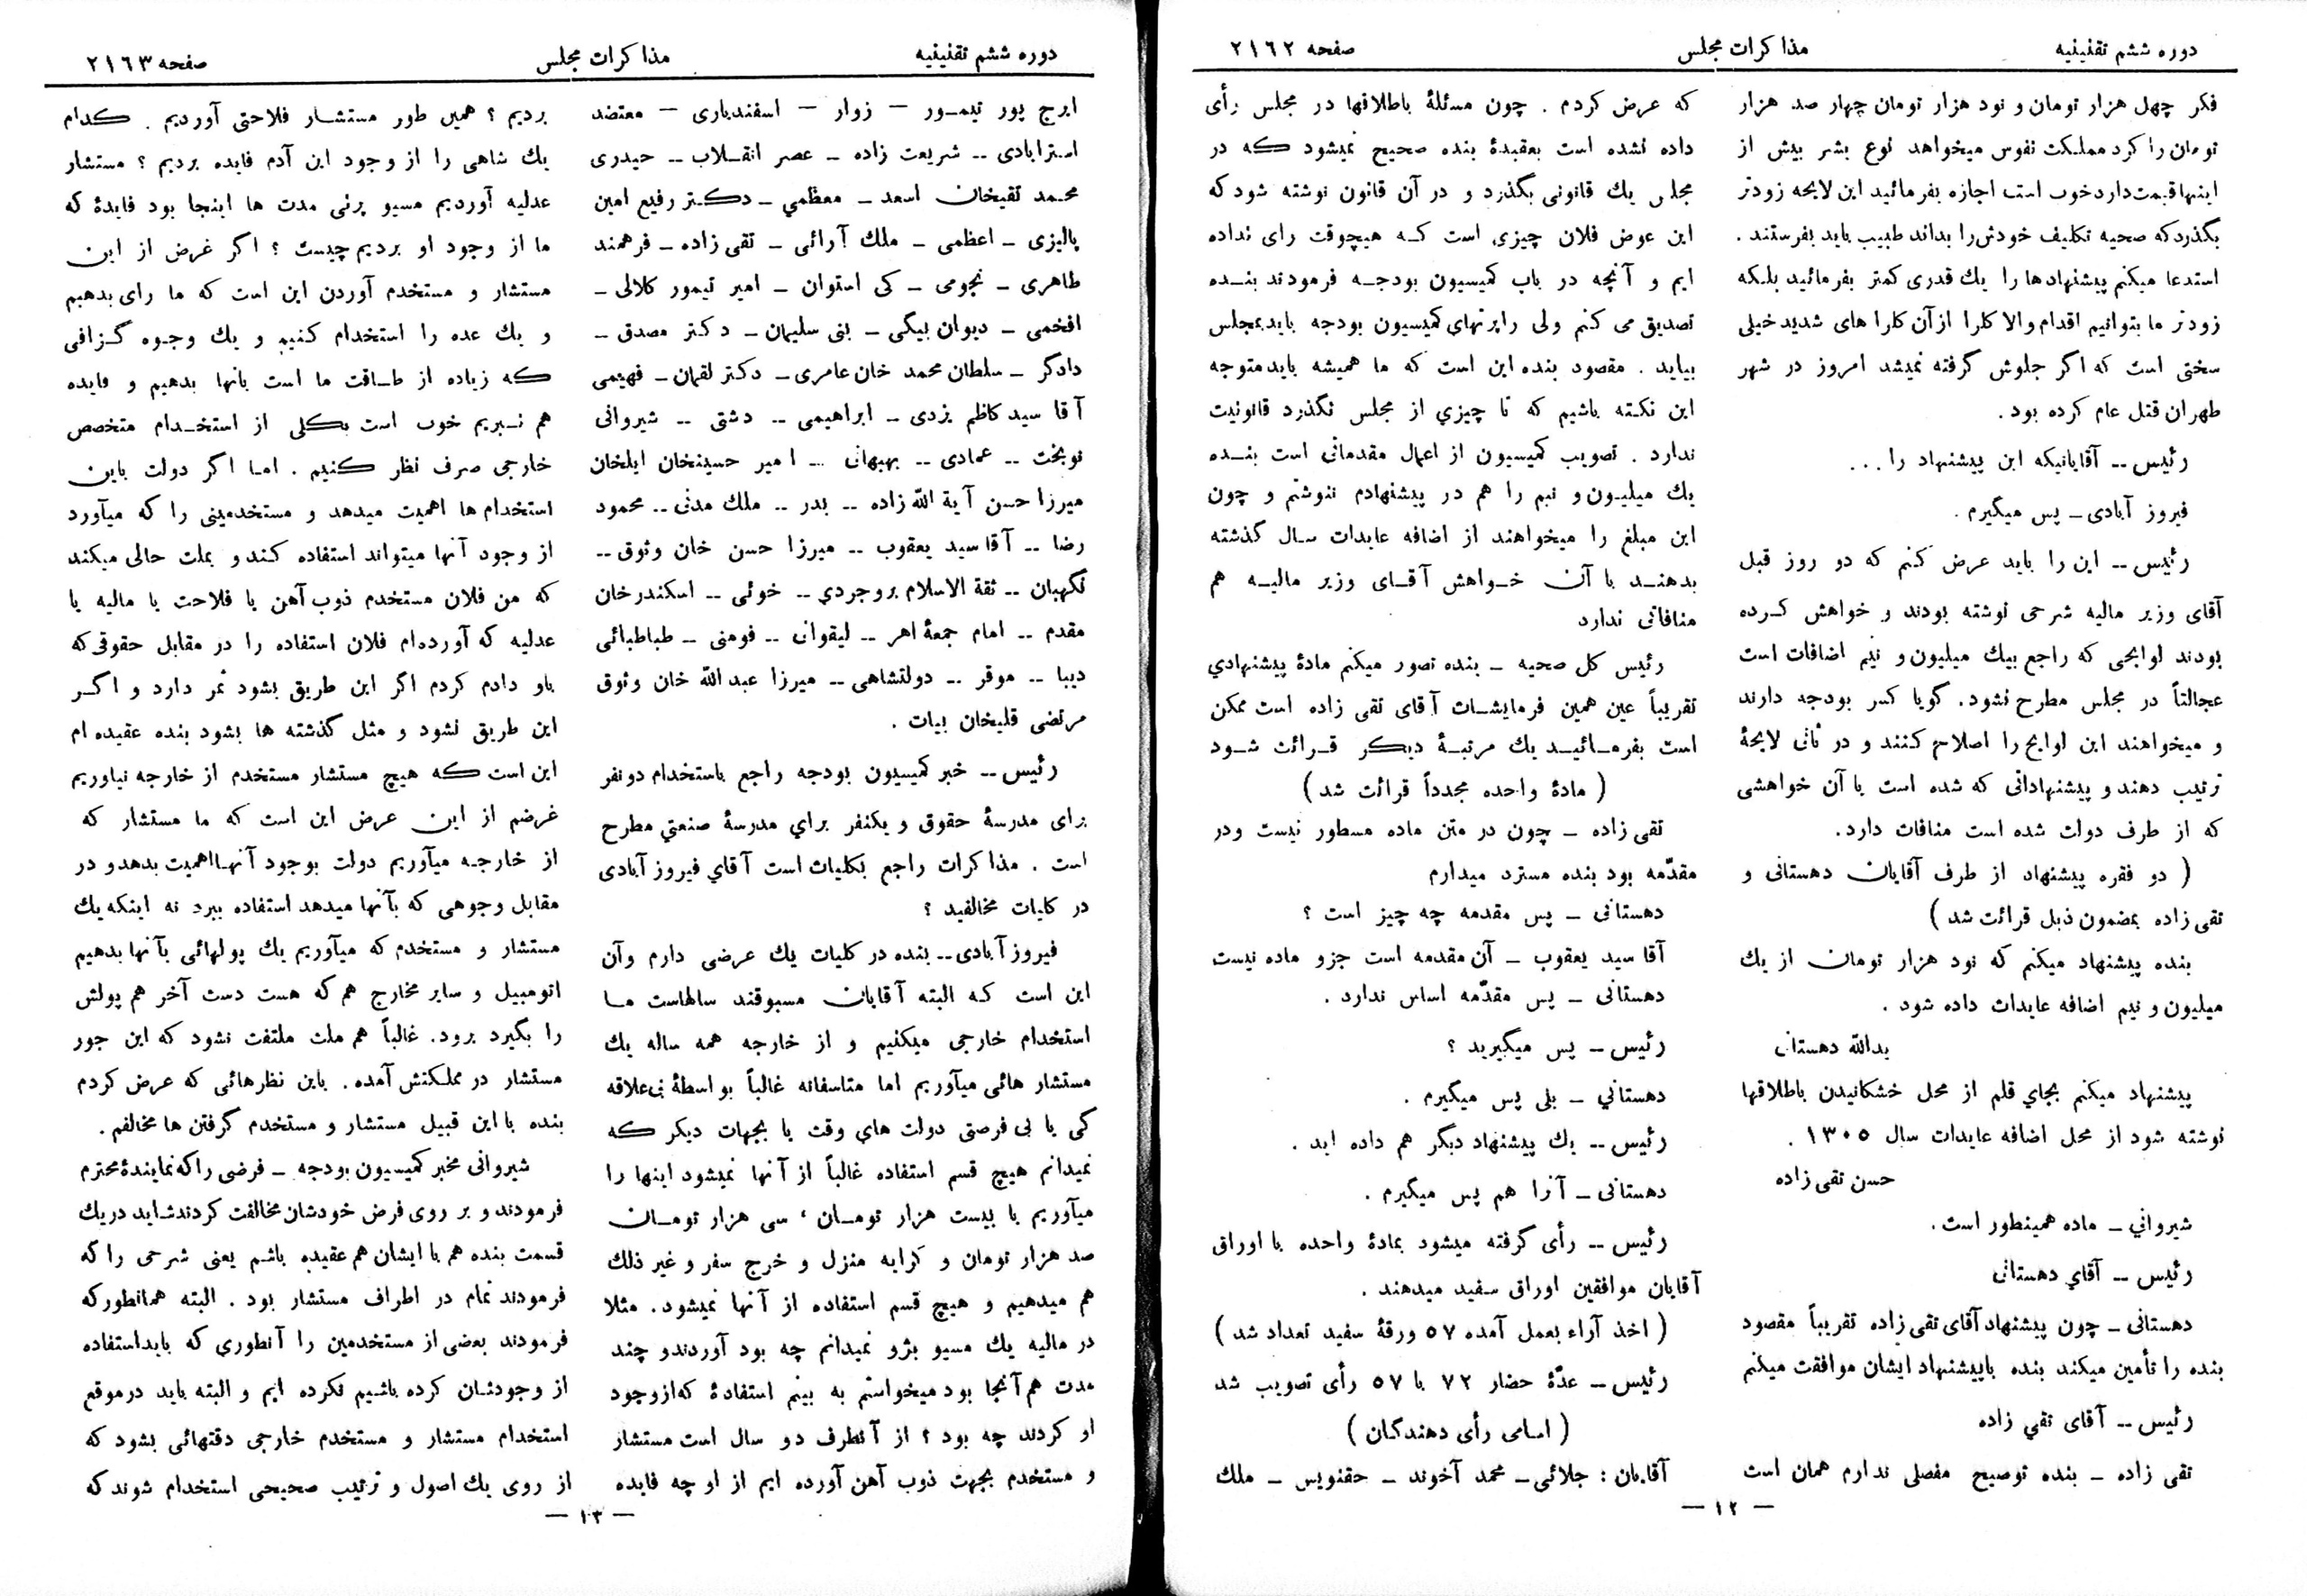 دوره ششم تقنینیه
مذاکرات مجلس
صفحه ۲۱۶۲
فکر چهل هزار تومان و نود هزار تومان چهار صد هزار
تومان را کرد مملکت نفوس میخواهد نوع بشر بیش از
اینها قیمت دارد خوب است اجازه بفرمائید این لایحه زودتر
بگذرد که صحیه تکلیف خودش را بداند طبیب باید بفرستند .
استدعا میکنم پیشنهادها را یك قدری کمتر بفرمائید بلکه
زودتر ما بتوانیم اقدام والا کلرا از آن کلرا های شدید خیلی
سختی است که اگر جلوش گرفته نمیشد امروز در شهر
طهران قتل عام کرده بود .
رئیس -- آقایانیکه این پیشنهاد را . . .
فیروز آبادی - پس میگیرم .
رئیس -- این را باید عرض کنم که دو روز قبل
آقای وزیر مالیه شرحی نوشته بودند و خواهش کرده
بودند لوایحی که راجع بیك میلیون و نیم اضافات است
عجالتاً در مجلس مطرح نشود . گویا کسر بودجه دارند
و میخواهند این لوایح را اصلاح کنند و در ثانی لایحهٔ
ترتیب دهند و پیشنهاداتی که شده است با آن خواهشی
که از طرف دولت شده است منافات دارد .
( دو فقره پیشنهاد از طرف آقایان دهستانی و
تقی زاده بمضمون ذیل قرائت شد )
بنده پیشنهاد میکنم که نود هزار تومان از یك
میلیون و نیم اضافه عایدات داده شود .
یدالله دهستانی
پیشنهاد میکنم بجای قلم از محل خشکانیدن باطلاقها
نوشته شود از محل اضافه عایدات سال ۱۳۰۵ .
حسن تقی زاده
شیروانی - ماده همینطور است .
رئیس -- آقای دهستانی
دهستانی - چون پیشنهاد آقای تقی زاده تقریباً مقصود
بنده را تأمین میکند بنده باپیشنهاد ایشان موافقت میکنم
رئیس -- آقای تقی زاده
تقی زاده - بنده توضیح مفصلی ندارم همان است
که عرض کردم . چون مسئلهٔ باطلاقها در مجلس رأی
داده نشده است بعقیدهٔ بنده صحیح نمیشود که در
مجلس یك قانونی بگذرد و در آن قانون نوشته شود که
این عوض فلان چیزی است که هیچوقت رای نداده
ایم و آنچه در باب کمیسیون بودجه فرمودند بنده
تصدیق می کنم ولی راپرتهای کمیسیون بودجه باید بمجلس
بیاید . مقصود بنده این است که ما همیشه باید متوجه
این نکته باشیم که تا چیزی از مجلس نگذرد قانونیت
ندارد . تصویب کمیسیون از اعمال مقدماتی است بنده
یك میلیون و نیم را هم در پیشنهادم ننوشتم و چون
این مبلغ را میخواهند از اضافه عایدات سال گذشته
بدهند با آن خواهش آقای وزیر مالیه هم
منافاتی ندارد
رئیس کل صحیه - بنده تصور میکنم مادهٔ پیشنهادی
تقریباً عین همین فرمایشات آقای تقی زاده است ممکن
است بفرمائید یك مرتبهٔ دیگر قرائت شود
( مادهٔ واحده مجدداً قرائت شد )
تقی زاده - چون در متن ماده مسطور نیست ودر
مقدّمه بود بنده مسترد میدارم
دهستانی - پس مقدمه چه چیز است ؟
آقا سید یعقوب - آن مقدمه است جزو ماده نیست
دهستانی - پس مقدّمه اساس ندارد .
رئیس - پس میگیرید ؟
دهستانی - بلی پس میگیرم .
رئیس -- یك پیشنهاد دیگر هم داده اید .
دهستانی - آنرا هم پس میگیرم .
رئیس -- رأی گرفته میشود بمادهٔ واحده با اوراق
آقایان موافقین اوراق سفید میدهند .
( اخذ آراء بعمل آمده ۵۷ ورقهٔ سفید تعداد شد )
رئیس - عدّهٔ حضار ۷۲ با ۵۷ رأی تصویب شد
( اسامی رأی دهندگان )
آقایان : جلائی - محمد آخوند - حقنویس - ملك
— ۱۲ —
دوره ششم تقنینیه
مذاکرات مجلس
صفحه ۲۱۶۳
ایرج پور تیمور - زوار - اسفندیاری - معتضد
استرابادی -- شریعت زاده - عصر انقلاب -- حیدری
محمد تقیخان اسعد - معظمی - دکتر رفیع امین
پالیزی - اعظمی - ملك آرائی - تقی زاده - فرهمند
طاهری - نجومی - کی استوان - امیر تیمور کلالی -
افخمی - دیوان بیگی - بنی سلیمان - دکتر مصدق -
دادگر - سلطان محمد خان عامری - دکتر لقمان - فهیمی
آقا سید کاظم یزدی - ابراهیمی -- دشتی -- شیروانی
نوبخت -- عمادی -- بهبهانی -- امیر حسینخان ایلخان
میرزا حسن آیة الله زاده -- بدر -- ملك مدنی -- محمود
رضا -- آقا سید یعقوب -- میرزا حسن خان وثوق --
نگهبان -- ثقة الاسلام بروجردی -- خوئی -- اسکندرخان
مقدم -- امام جمعهٔ اهر -- لیقوانی -- فومنی - طباطبائی
دیبا -- موقر -- دولتشاهی -- میرزا عبد الله خان وثوق
مرتضی قلیخان بیات .
رئیس -- خبر کمیسیون بودجه راجع باستخدام دو نفر
برای مدرسهٔ حقوق و یکنفر برای مدرسهٔ صنعتی مطرح
است . مذاکرات راجع بکلیات است آقای فیروز آبادی
در کلیات مخالفید ؟
فیروز آبادی -- بنده در کلیات یك عرضی دارم وآن
این است که البته آقایان مسبوقند سالهاست ما
استخدام خارجی میکنیم و از خارجه همه ساله یك
مستشار هائی میآوریم اما متاسفانه غالباً بواسطهٔ بی علاقه
کی یا بی فرصتی دولت های وقت یا بجهات دیگر که
نمیدانم هیچ قسم استفاده غالباً از آنها نمیشود اینها را
میآوریم با بیست هزار تومان ، سی هزار تومان
صد هزار تومان و کرایه منزل و خرج سفر و غیر ذلك
هم میدهیم و هیچ قسم استفاده از آنها نمیشود . مثلا
در مالیه یك مسیو بژو نمیدانم چه بود آوردند و چند
مدت هم آنجا بود میخواستم به بینم استفادهٔ که از وجود
او کردند چه بود ؟ از آنطرف دو سال است مستشار
و مستخدم بجهت ذوب آهن آورده ایم از او چه فایده
بردیم ؟ همین طور مستشار فلاحتی آوردیم . کدام
یك شاهی را از وجود این آدم فایده بردیم ؟ مستشار
عدلیه آوردیم مسیو پرنی مدت ها اینجا بود فایدهٔ که
ما از وجود او بردیم چیست ؟ اگر غرض از این
مستشار و مستخدم آوردن این است که ما رای بدهیم
و یك عده را استخدام کنیم و یك وجوه گزافی
که زیاده از طاقت ما است بآنها بدهیم و فایده
هم نبریم خوب است بکلی از استخدام متخصص
خارجی صرف نظر کنیم . اما اگر دولت باین
استخدام ها اهمیت میدهد و مستخدمینی را که میآورد
از وجود آنها میتواند استفاده کند و بملت حالی میکند
که من فلان مستخدم ذوب آهن یا فلاحت یا مالیه یا
عدلیه که آورده‌ام فلان استفاده را در مقابل حقوقی که
باو دادم کردم اگر این طریق بشود ثمر دارد و اگر
این طریق نشود و مثل گذشته ها بشود بنده عقیده ام
این است که هیچ مستشار مستخدم از خارجه نیاوریم
غرضم از این عرض این است که ما مستشار که
از خارجه میآوریم دولت بوجود آنها اهمیت بدهد و در
مقابل وجوهی که بآنها میدهد استفاده ببرد نه اینکه یك
مستشار و مستخدم که میآوریم یك پولهائی بآنها بدهیم
اتومبیل و سایر مخارج هم که هست دست آخر هم پولش
را بگیرد برود . غالباً هم ملت ملتفت نشود که این جور
مستشار در مملکتش آمده . باین نظرهائی که عرض کردم
بنده با این قبیل مستشار و مستخدم گرفتن ها مخالفم .
شیروانی مخبر کمیسیون بودجه - فرضی را که نمایندهٔ محترم
فرمودند و بر روی فرض خودشان مخالفت کردند شاید در یك
قسمت بنده هم با ایشان هم عقیده باشم یعنی شرحی را که
فرمودند تمام در اطراف مستشار بود . البته همانطور که
فرمودند بعضی از مستخدمین را آنطوری که باید استفاده
از وجودشان کرده باشیم نکرده ایم و البته باید در موقع
استخدام مستشار و مستخدم خارجی دقتهائی بشود که
از روی یك اصول و ترتیب صحیحی استخدام شوند که
— ۱۳ —